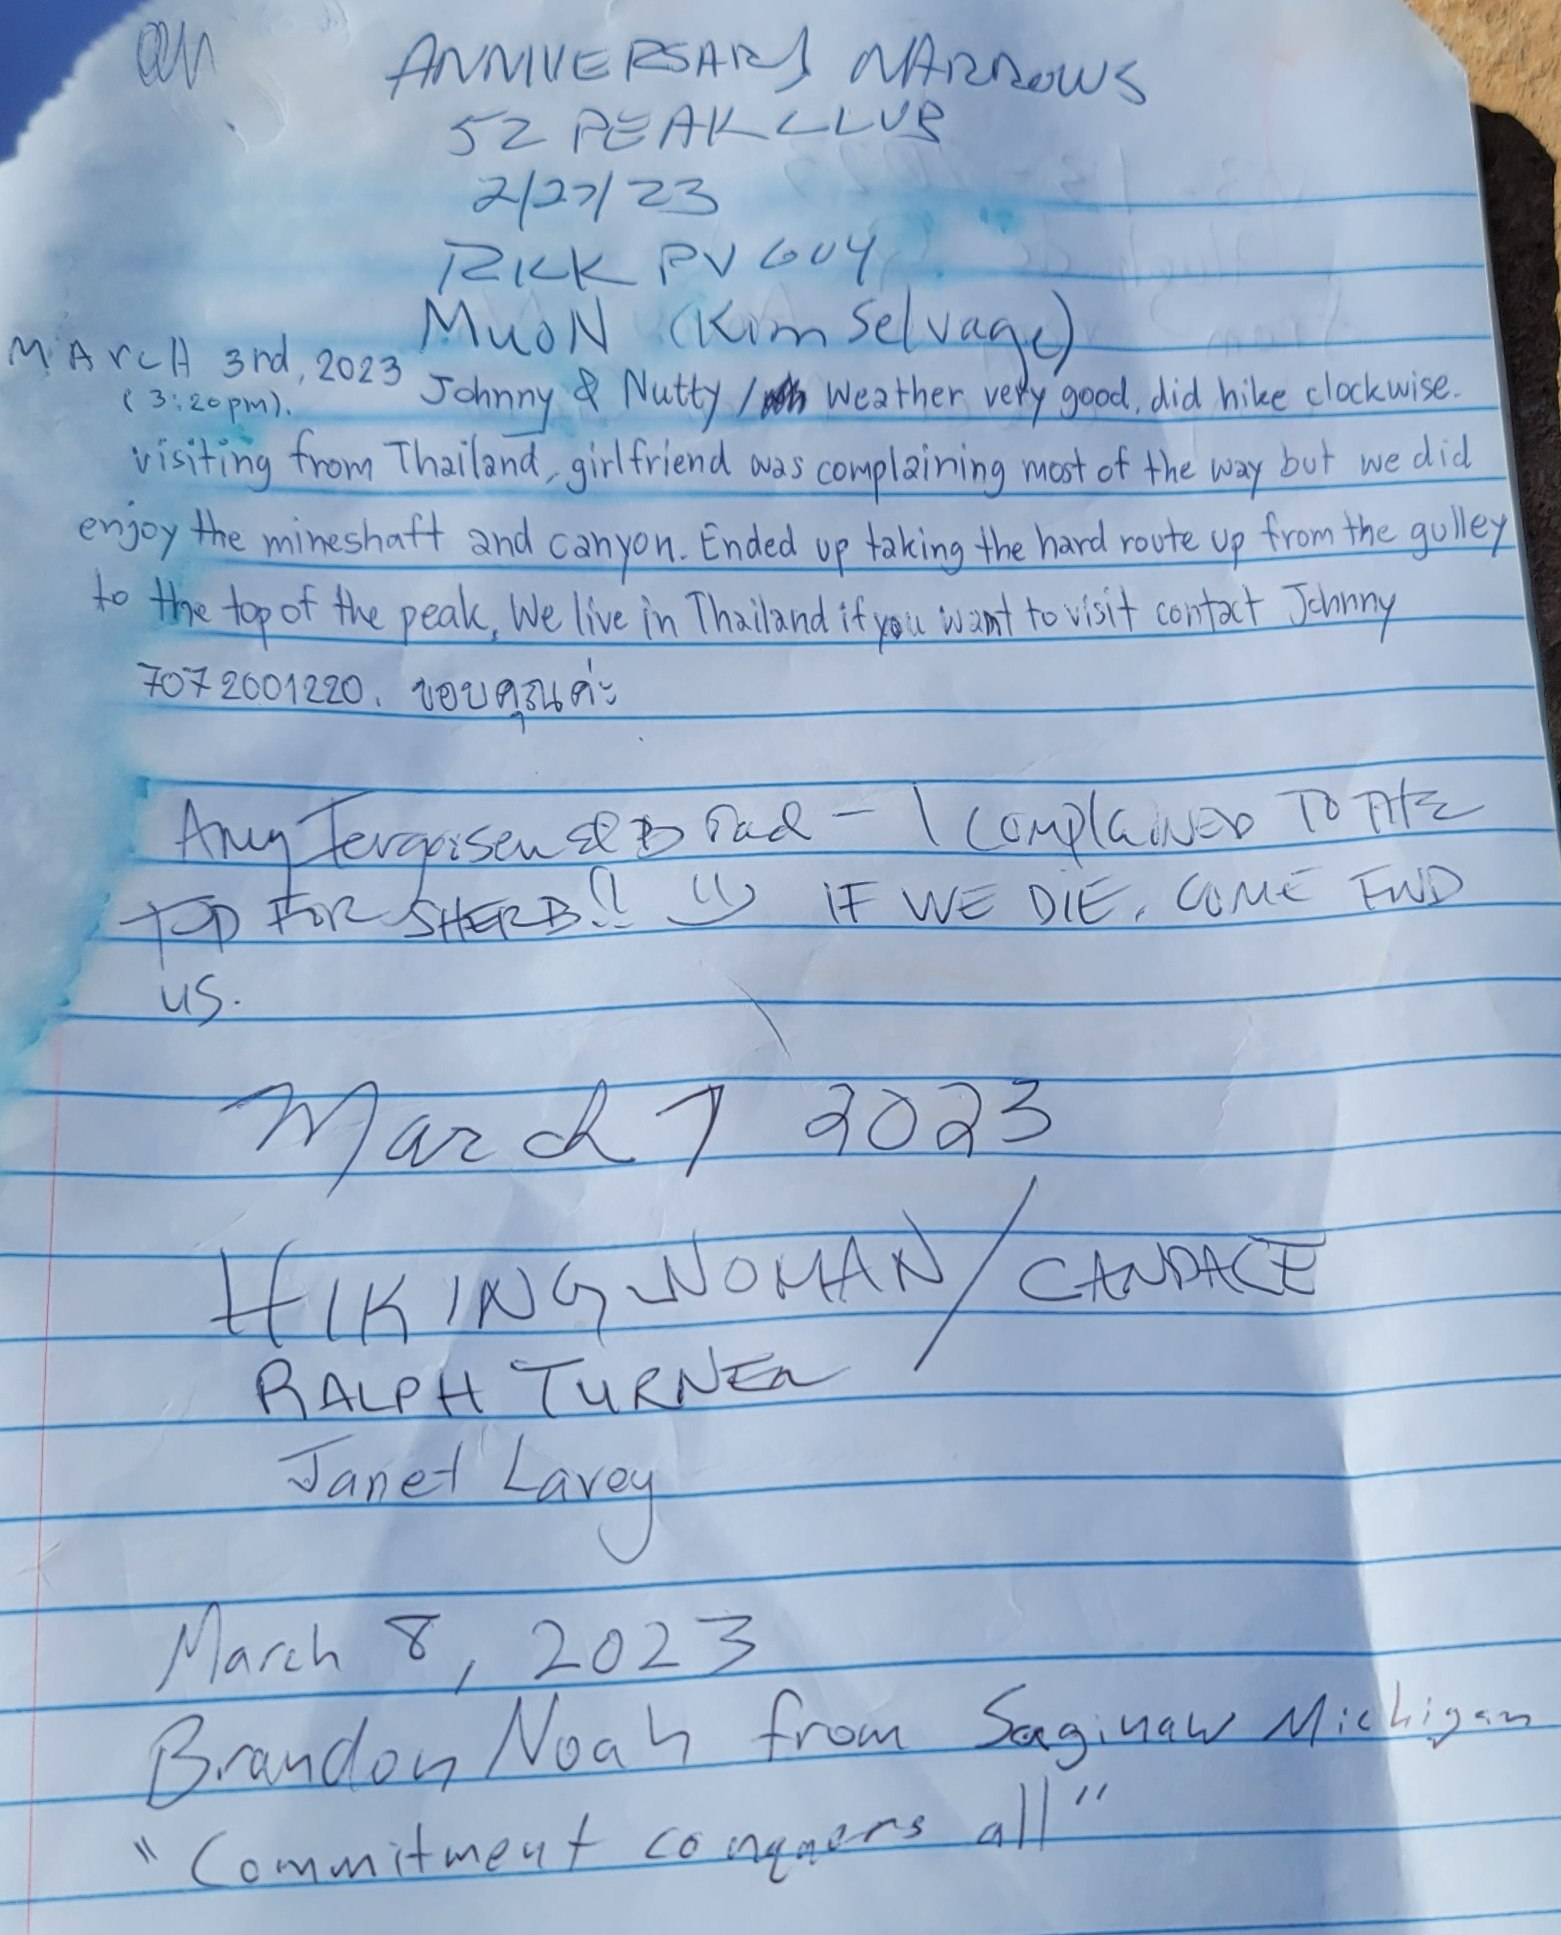 ANNIVERSARY NARROWS
52 PEAK CLUB
2/27/23
RICK PV GUY
MUON (Kim Selvage)
MArcH 3rd, 2023
(3:20pm).
Johnny & Nutty / Weather very good, did hike clockwise.
visiting from Thailand, girlfriend was complaining most of the way but we did
enjoy the mineshaft and canyon. Ended up taking the hard route up from the gulley
to the top of the peak, We live in Thailand if you want to visit contact Johnny
7072001220. ขอบคุณค่ะ
Amy & Brad - I COMPlAINED TO THE
TOP FOR SHERB!! IF WE DIE, COME FIND
US.
March 7 2023
HIKINGWOMAN / CANDACE
RALPH TURNER
Janet Lavey
March 8, 2023
Brandon Noah from Saginaw Michigan
"Commitment conquers all"